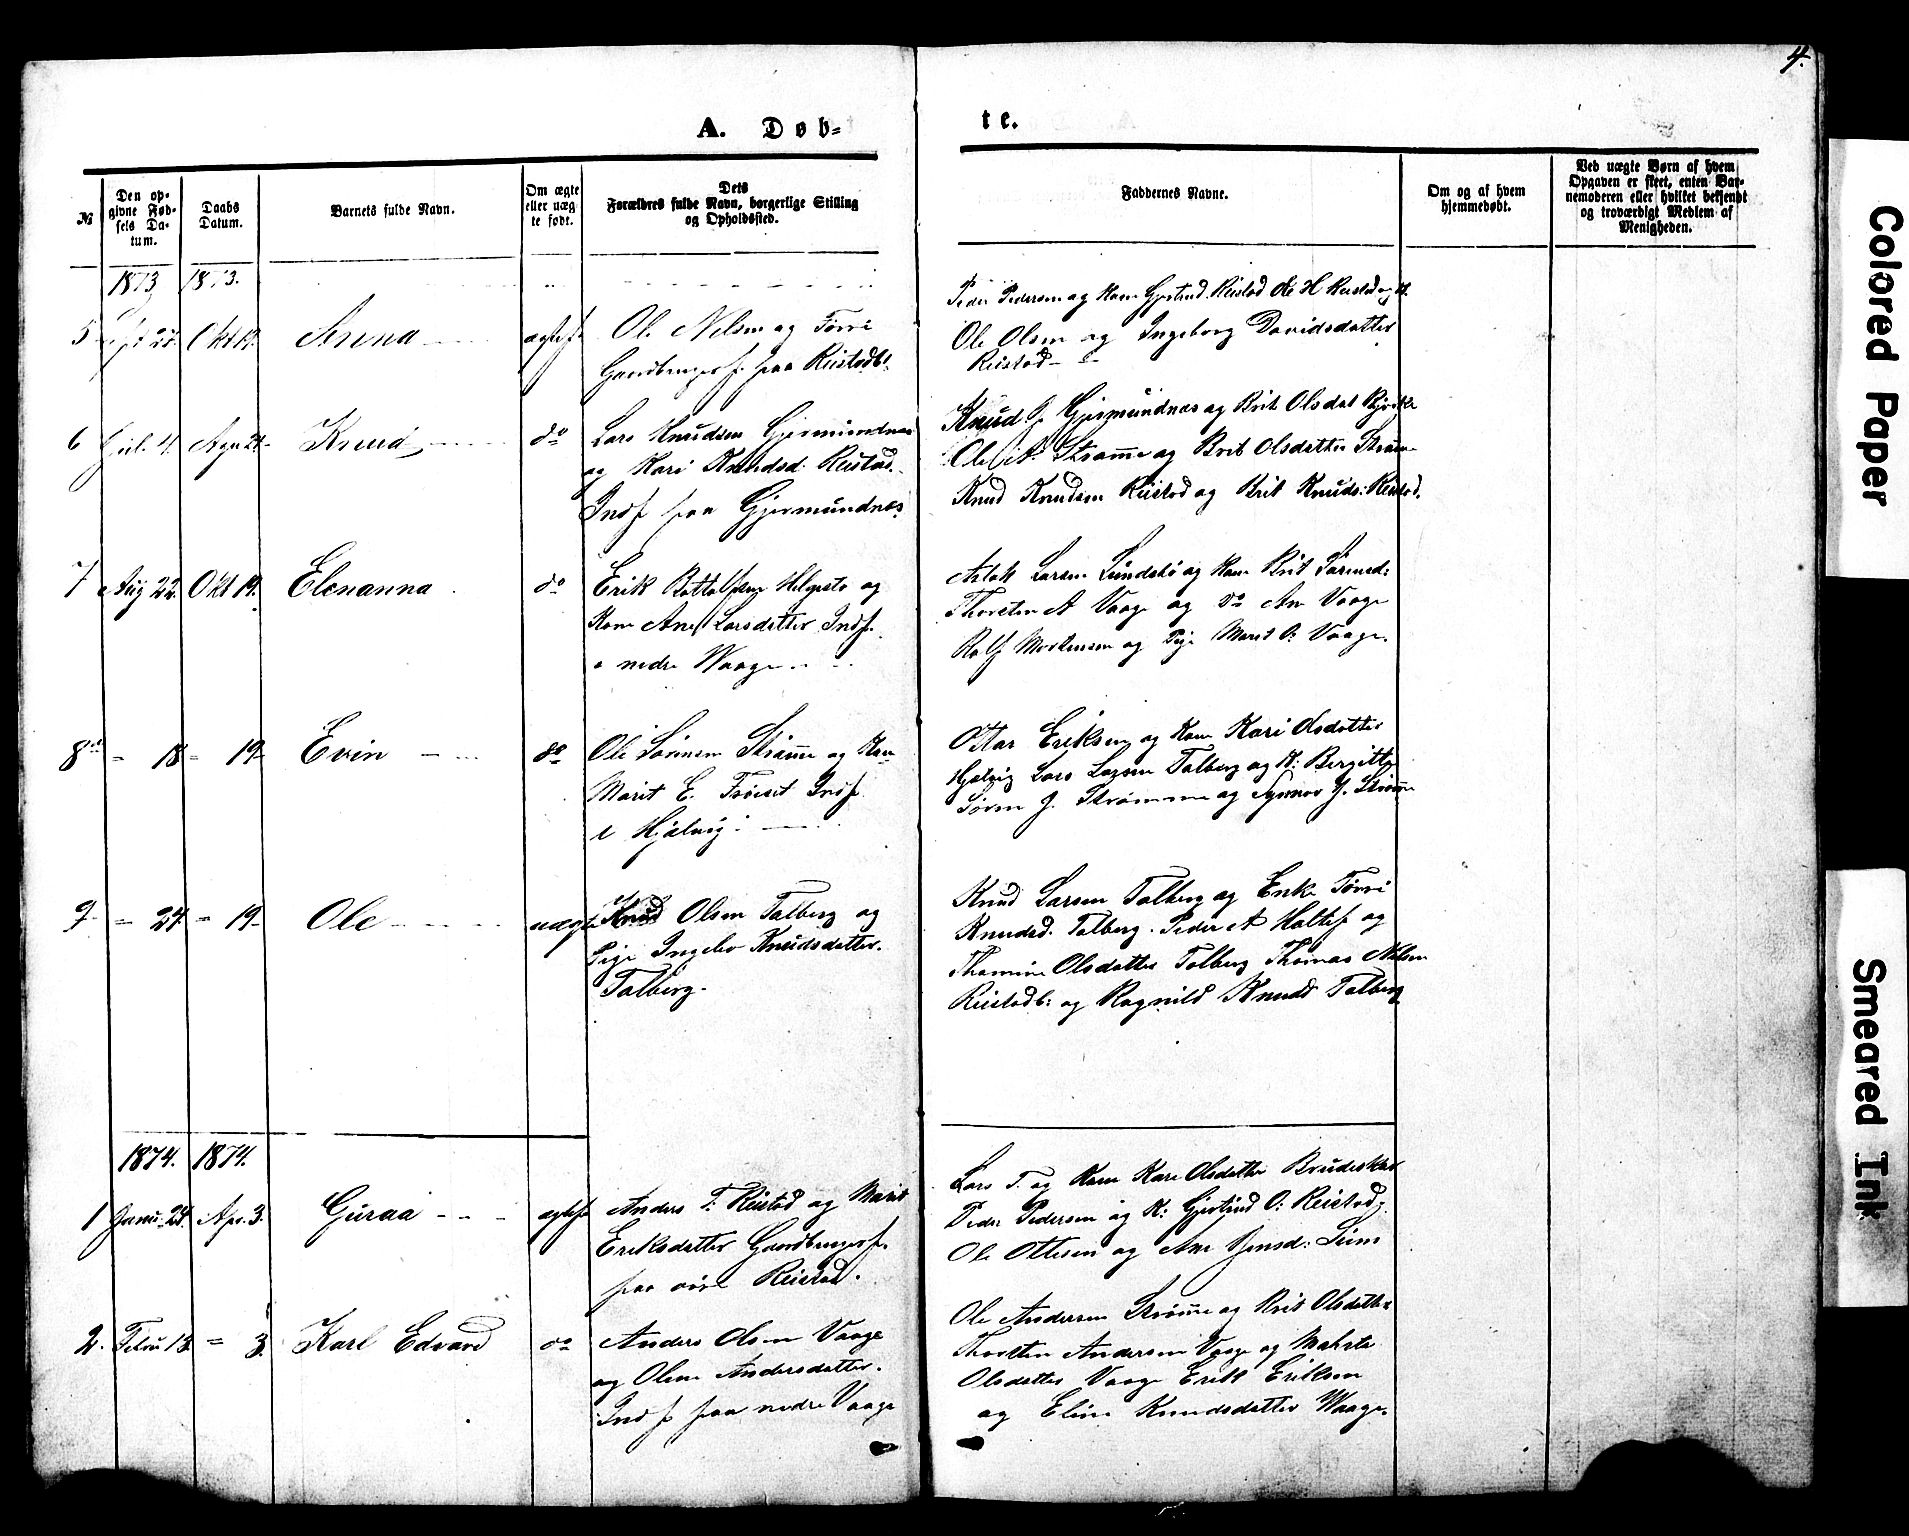 4.
A. Døb-
te.
№
Den op-
givne Fød-
sels Da-
tum.
Daabs
Datum.
Barnets fulde Navn.
Om ægte
eller uæg
te født.
Dets
Forældres fulde Navn, borgerlige Stilling
og Opholdssted.
Faddernes Navne.
Om og af hvem
hjemmedøbt.
Ved uægte Børn af hvem
Opgaven er skeet, enten Bar-
nemoderen eller hvilket bekjendt
og troværdigt Medlem af
Menigheden.
1873 1873.
5 Okt 19. Anna
Ole Nelsen og Torri
paa Reistadb:
Peder Pedersen og Kone Gjertrud Reistad Ole H Reistad og K.
Ole Olsen og Ingeborg Davidsdatter
Reistad
6 Juli 4. Agu 24 Knud do
Lars Knudsen Gjermundnes
og Kari Knudsd: Reistad
Inds paa Gjermundnes
Knud J Gjermundnes og Brit Olsdat
Ole Strømme og Brit Olsdatter Strøm
Knud Knudsen Reistad og Brit Knuds: Reistad.
7 Aug 22. Okt 19. Elenanna do
Erik og
Kone Ane Larsdatter Inds.
nedre Waage
Aslak Larsen Lundsbø og Kone Brit
Thorsten A Vaage og do An Vaage
Rolf Mortensen og Pige Marit O: Vaage.
8 = 18 = 19 Evin do
Ole Sørensen Strømme og Kone
Marit E. Inds
i Hjelvig
Ottar Eriksen og Kone Kari Olsdatter
Hjelvig Lars Larsen Talberg og K: Bergitte
Søren J. Strømme og Synnøv J. Strømme
9 = 24 = 19 Ole uægte
Knud Olsen Talberg og
Pige Ingebor Knudsdatter.
Talberg.
Knud Larsen Talberg og Enke Torri
Knudsd. Talberg. Peder A og
Thomine Olsdatter Talberg Thomas Nelsen
Reistadb: og Ragnild Knuds Talberg
1874. 1874.
1 Janu 24. Apr. 3. Guraa
Anders T. Reistad og Marit
Eriksdatter
paa øvre Reistad.
Lars T. og Kone Kari Olsdatter Brudeskar
Peder Pedersen og K: Gjertrud O: Reistad
Ole Ottesen og Ane Jensd:
2. Febru 13 = 3. Karl Edvard do
Anders Olsen Vaage
og Olene Andersdatter.
Inds paa nedre Vaage
Ole Andersen Strømme og Brit Olsdatter
Thorsten Andersen Vaage og Mahrta
Olsdatter Vaage Erik Eriksen
og Eline Knudsdatter Waage.
Colored Paper
Smeared Ink